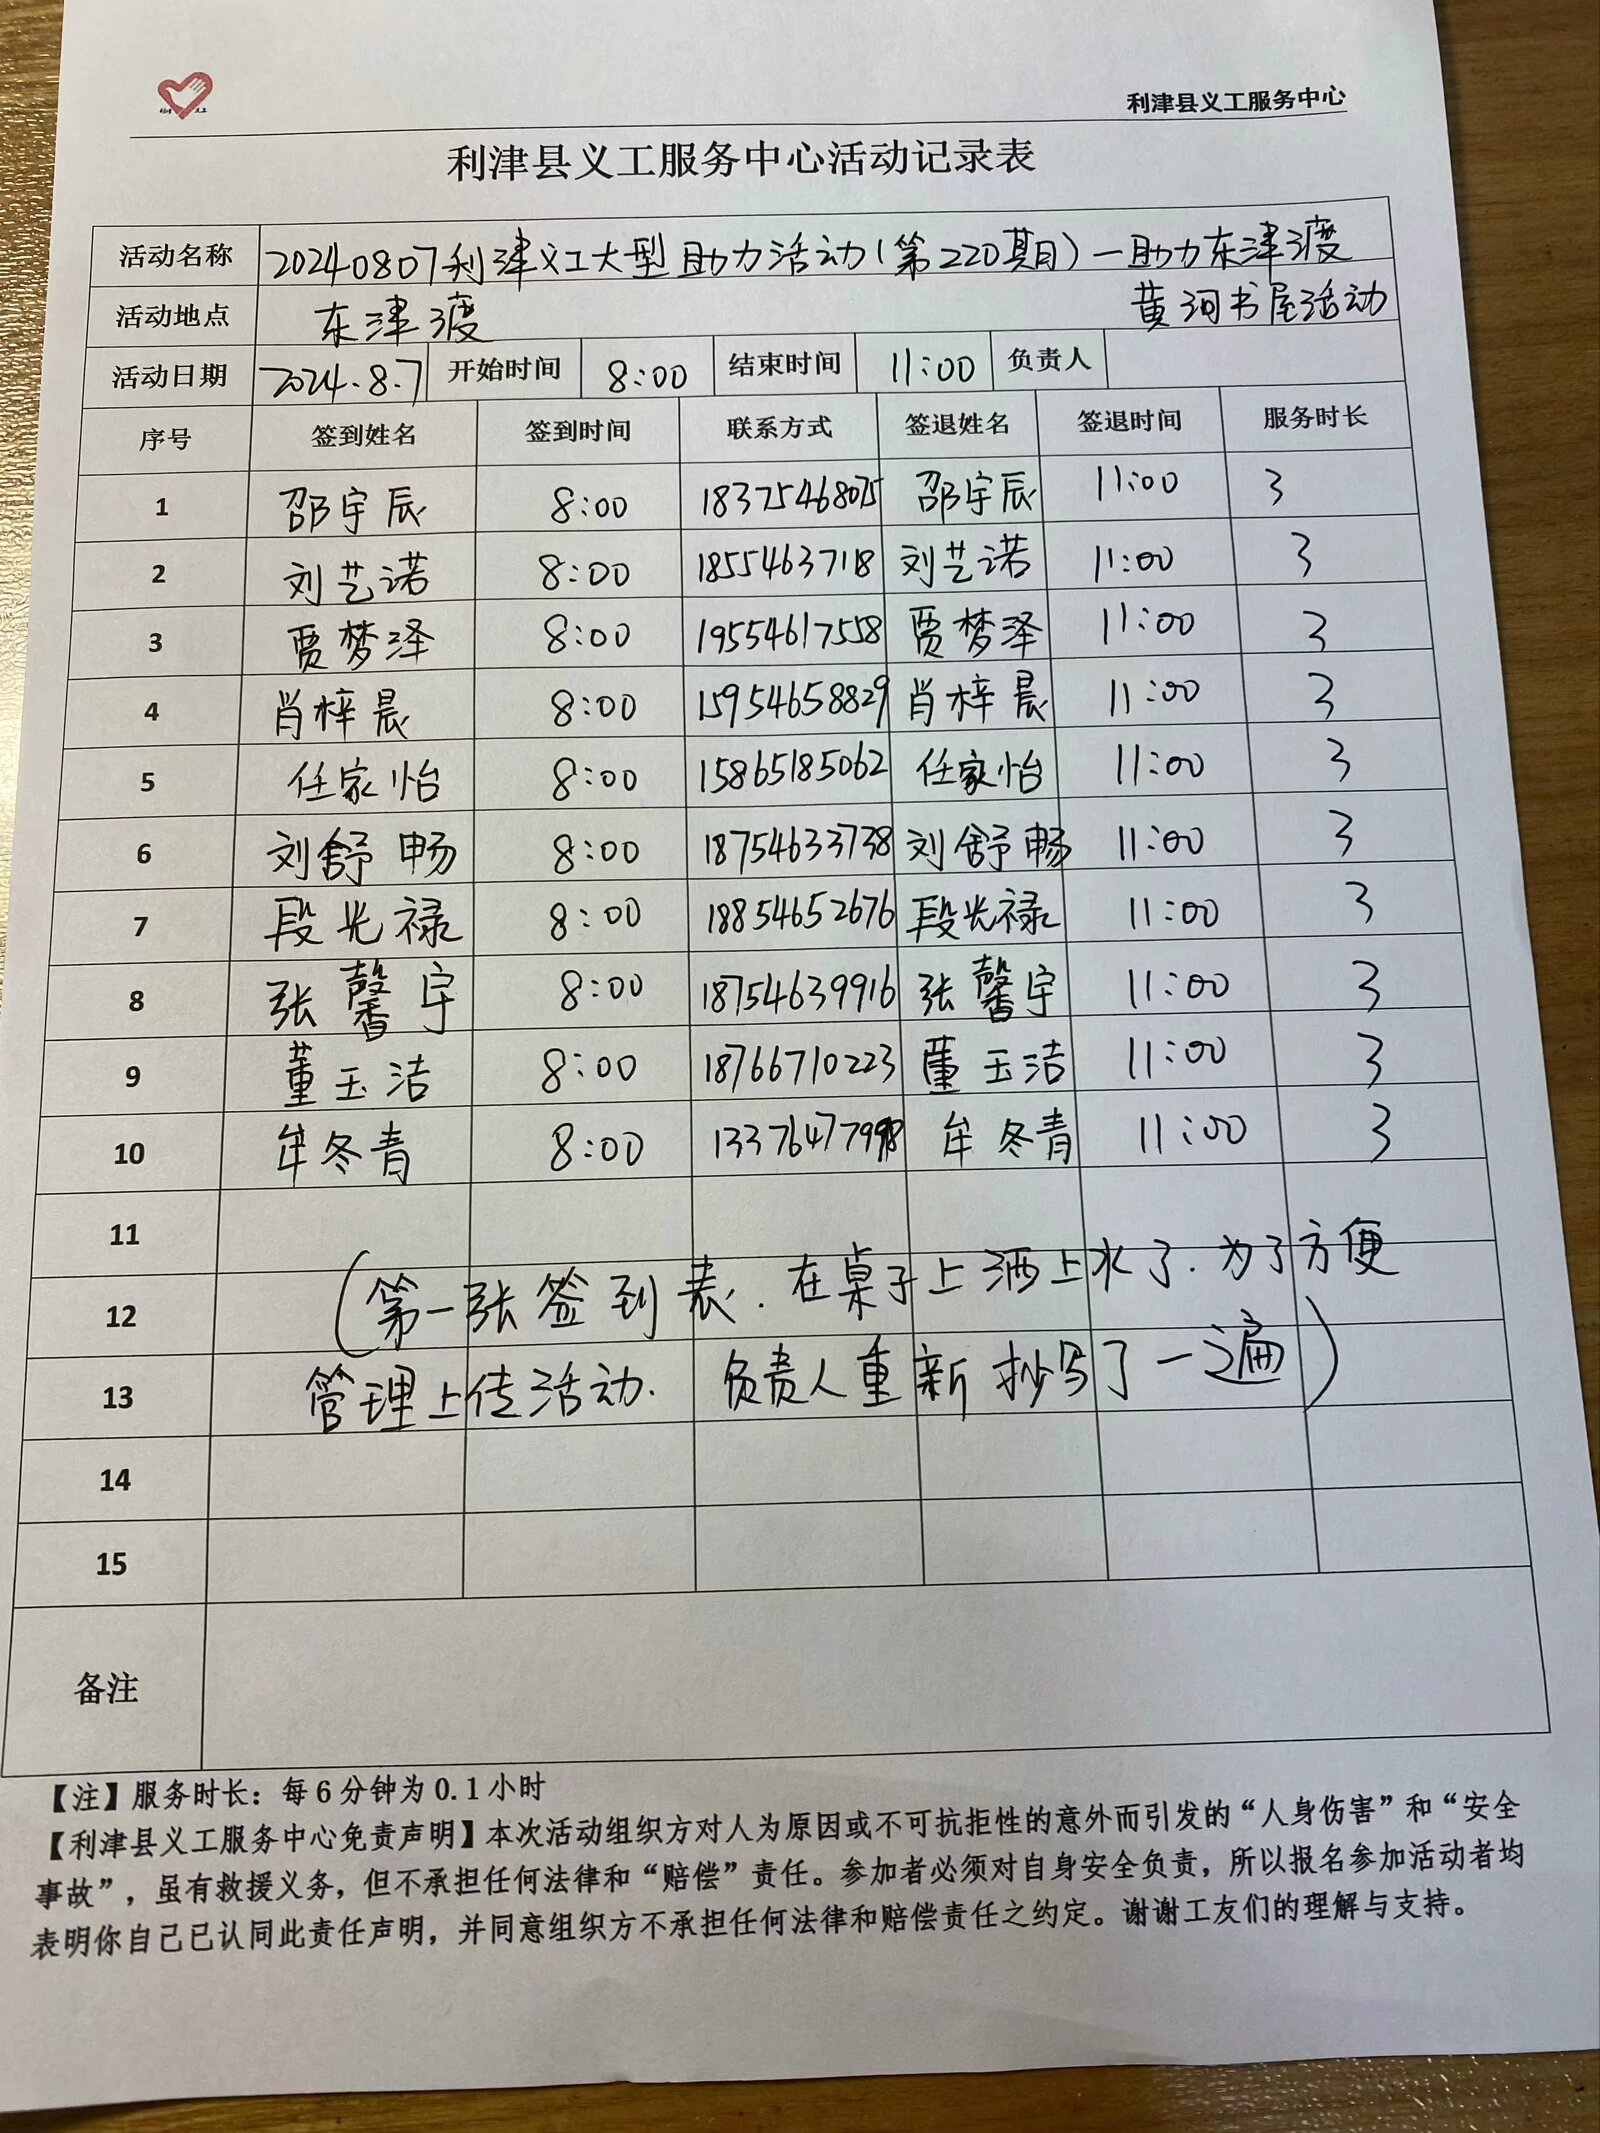 利津县义工服务中心
利津县义工服务中心活动记录表
活动名称 20240807利津义工大型助力活动(第220期)—助力东津渡
黄河书屋活动
活动地点 东津渡
活动日期 2024.8.7 开始时间 8:00 结束时间 11:00 负责人
序号 签到姓名 签到时间 联系方式 签退姓名 签退时间 服务时长
1 邵宇辰 8:00 18375468075 邵宇辰 11:00 3
2 刘艺诺 8:00 18554637118 刘艺诺 11:00 3
3 贾梦泽 8:00 19554617558 贾梦泽 11:00 3
4 肖梓晨 8:00 15954658829 肖梓晨 11:00 3
5 任家怡 8:00 15865185062 任家怡 11:00 3
6 刘舒畅 8:00 18754633738 刘舒畅 11:00 3
7 段光禄 8:00 18854652676 段光禄 11:00 3
8 张馨宇 8:00 18754639916 张馨宇 11:00 3
9 董玉洁 8:00 18766710223 董玉洁 11:00 3
10 牟冬青 8:00 牟冬青 11:00 3
11
12 (第一张签到表.在桌子上洒上水了.为了方便
13 管理上传活动. 负责人重新抄写了一遍)
14
15
备注
【注】服务时长：每6分钟为0.1小时
【利津县义工服务中心免责声明】本次活动组织方对人为原因或不可抗拒性的意外而引发的“人身伤害”和“安全
事故”，虽有救援义务，但不承担任何法律和“赔偿”责任。参加者必须对自身安全负责，所以报名参加活动者均
表明你自己已认同此责任声明，并同意组织方不承担任何法律和赔偿责任之约定。谢谢工友们的理解与支持。